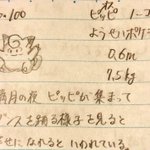 o.100 ピッピ
ようせいポケ
0.6m
7.5kg
満月の夜 ピッピが集まって
ンスを踊る様子を見ると
せになれると いわれている。